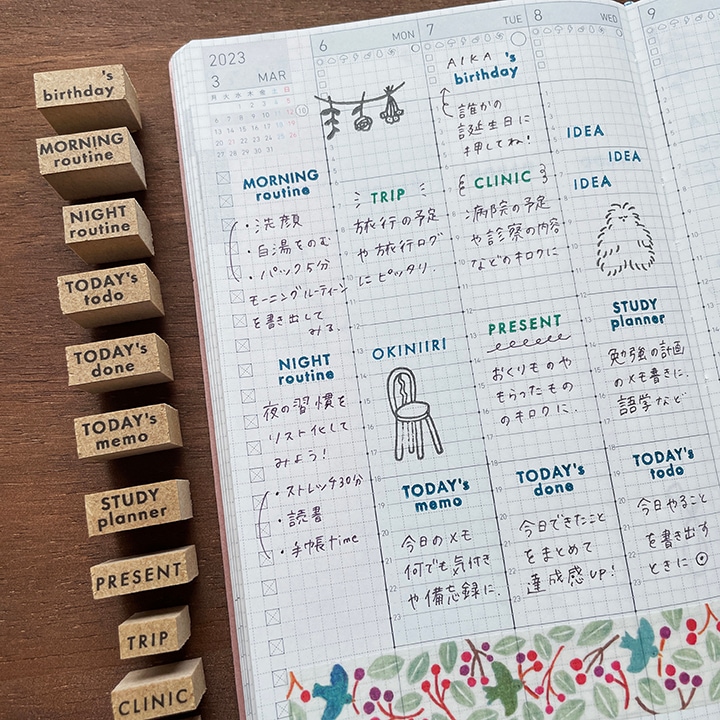 's
birthday
MORNING
routine
NIGHT
routine
TODAY's
todo
TODAY's
done
TODAY's
memo
STUDY
planner
PRESENT
TRIP
CLINIC
2023
3 MAR
月 火 水 木 金 土 日
1 2 3 4 5
6 7 8 9 10 11 12
13 14 15 16 17 18 19
20 21 22 23 24 25 26
27 28 29 30 31
10
MORNING
routine
・洗顔
・白湯をのむ
・パック5分
モーニングルーティーン
を書き出して
みる.
NIGHT
routine
夜の習慣を
リスト化して
みよう!
・ストレッチ30分
・読書
・手帳time
6 MON
TRIP
旅行の予定
や旅行ログ
にピッタリ.
OKINIIRI
TODAY's
memo
今日のメモ
何でも気付き
や備忘録に.
7 TUE
AIKA's
birthday
誰かの
誕生日に
押してね!
CLINIC
病院の予定
や診察の内容
などのキロクに
PRESENT
おくりものや
もらったもの
のキロクに.
TODAY's
done
今日できたこと
をまとめて
達成感up!
8 WED
IDEA
IDEA
IDEA
STUDY
planner
勉強の計画
のメモ書きに.
語学など
TODAY's
todo
今日やること
を書き出す
ときに
9